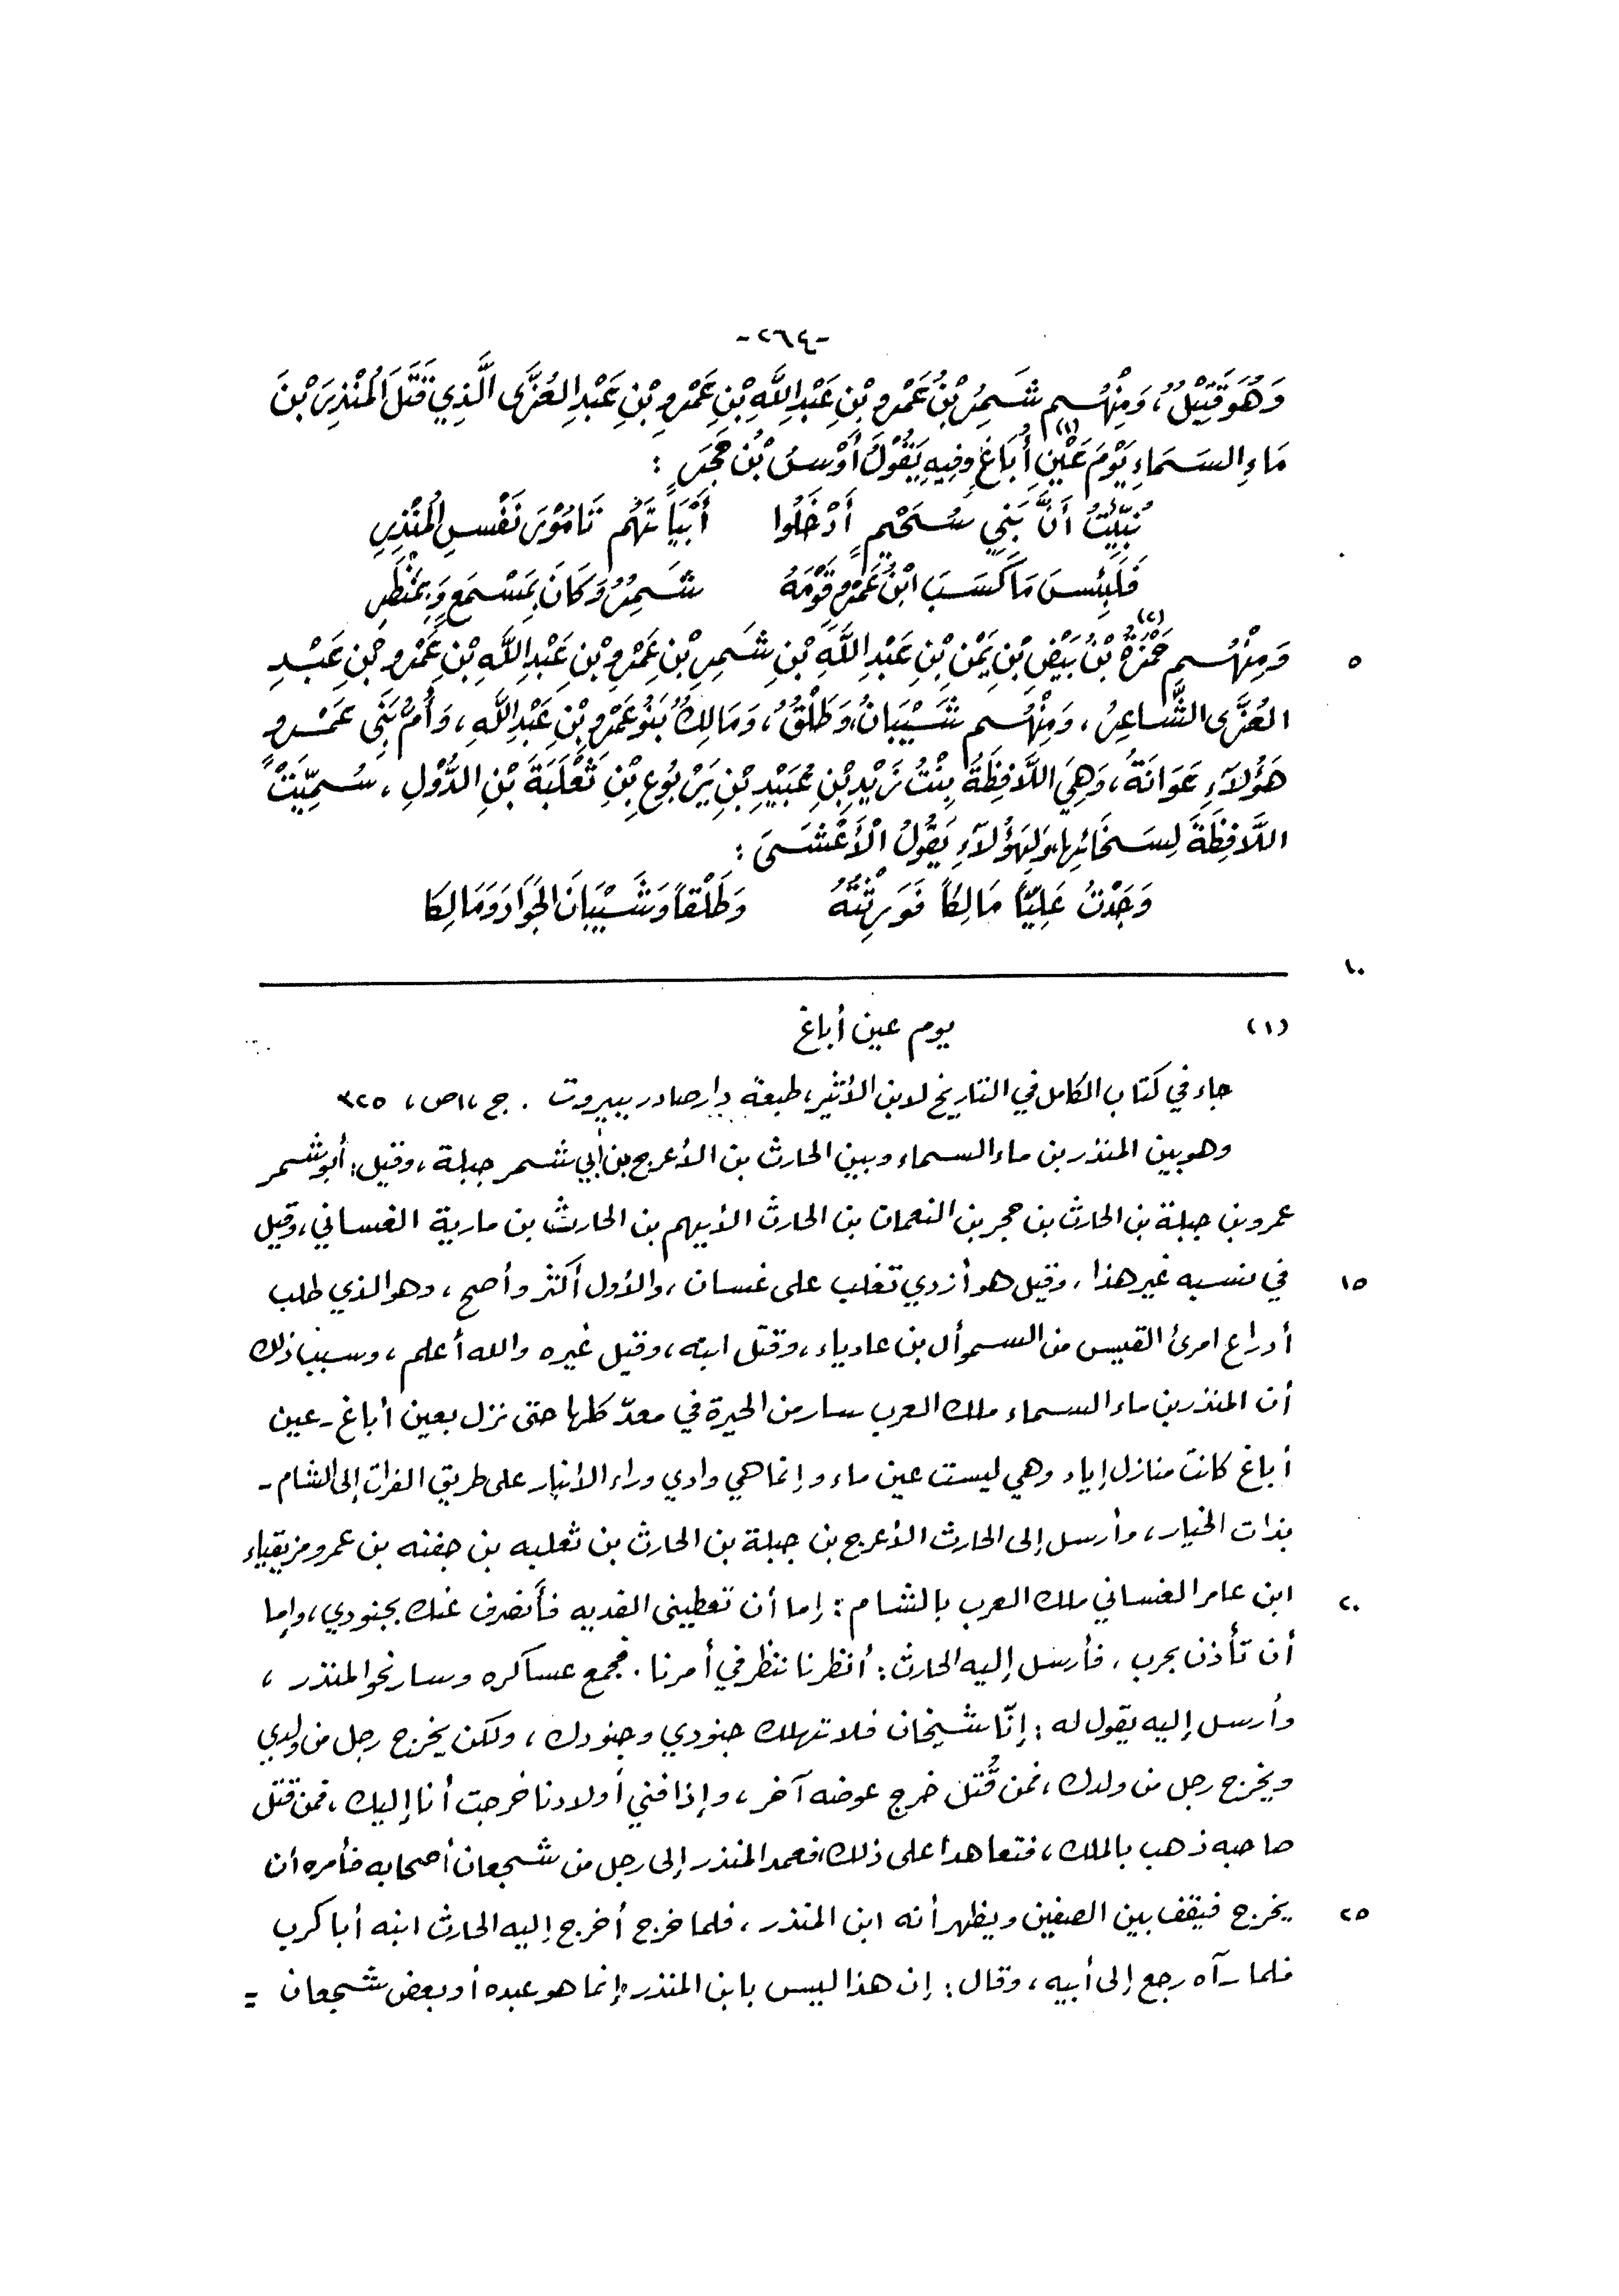 -٢٦٤-
وَهُوَ قَتِيْلٌ، وَمِنْهُم شَمِرُ بْنُ عَمْرِو بْنِ عَبْدِ اللَّهِ بْنِ عَمْرِو بْنِ عَبْدِ العُزَّى الَّذِي قَتَلَ الْمُنْذِرَ بْنَ
مَاءِ السَمَاءِ يَوْمَ عَيْنِ أُبَاغٍ (١) وفِيهِ يَقُوْلُ أَوْسُ بْنُ حَجَرٍ :
نُبِّئْتُ أَنَّ بَنِي سُحَيْمٍ أَدْخَلُوا     أَبْيَاتَهُم تَامُوْرَ نَفْسِ الْمُنْذِرِ
فَلَبِئْسَ مَا كَسَبَ ابْنُ عَمْرٍو قَوْمَهُ     شَمِرٌ وَكَانَ بِمَسْمَعٍ وَبِمَنْظَرِ
٥ وَمِنْهُم حَمْزَةُ (٢) بْنُ بَيْضِ بْنِ يَمْنِ بْنِ عَبْدِ اللَّهِ بْنِ شَمِرِ بْنِ عَمْرِو بْنِ عَبْدِ اللَّهِ بْنِ عَمْرِو بْنِ عَبْدِ
العُزَّى الشَّاعِرُ، وَمِنْهُم شَيْبَانُ، وَطَلْقٌ، وَمَالِكٌ بَنُو عَمْرِو بْنِ عَبْدِ اللَّهِ، وَأُمُّ بَنِي عَمْرٍو
هَؤُلَاءِ عَوَانَةُ، وَهِيَ اللَّافِظَةُ بِنْتُ زَيْدِ بْنِ عُبَيْدِ بْنِ يَرْبُوعِ بْنِ ثَعْلَبَةَ بْنِ الدُّوْلِ، سُمِّيَتْ
اللَّافِظَةَ لِسَخَائِهَا، وَلِهَؤُلَاءِ يَقُوْلُ الْأَعْشَى :
وَجَدْتُ عَلِيّاً مَالِكاً فَوَرِثْتَهُ     وَطَلْقاً وَشَيْبَانَ الجَوَادَ وَمَالِكَا
١٠
(١) يوم عين أباغ
جاء في كتاب الكامل في التاريخ لابن الأثير، طبعة دار صادر ببيروت . ج ،١ ص، ٣٢٥
وهو بين المنذر بن ماء السماء وبين الحارث بن الأعرج بن أبي شمر جبلة، وقيل: أبو شمر
عمرو بن جبلة بن الحارث بن حجر بن النعمان بن الحارث الأيهم بن الحارث بن مارية الغساني، وقيل
١٥ في نسبه غير هذا، وقيل هو أزدي تغلب على غسان، والأول أكثر وأصح، وهو الذي طلب
أدراع امرئ القيس من السموأل بن عادياء، وقتل ابنه، وقيل غيره والله أعلم، وسبب ذلك
أن المنذر بن ماء السماء ملك العرب سار من الحيرة في معدّ كلها حتى نزل بعين أباغ - عين
أباغ كانت منازل إياد وهي ليست عين ماء وإنما هي وادي وراء الأنبار على طريق الفرات إلى الشام -
بذات الخيار، وأرسل إلى الحارث الأعرج بن جبلة بن الحارث بن ثعلبه بن جفنه بن عمرو مزيقياء
٢٠ ابن عامر الغساني ملك العرب بالشام : إما أن تعطيني الفديه فأنصرف عنك بجنودي، وإما
أن تأذن بحرب، فأرسل إليه الحارث : أنظرنا ننظر في أمرنا. فجمع عساكره وسار نحو المنذر،
وأرسل إليه يقول له : إنّا شيخان فلا تهلك جنودي وجنودك، ولكن يخرج رجل من ولدي
ويخرج رجل من ولدك، فمن قُتل خرج عوضه آخر، وإذا فني أولادنا خرجت أنا إليك، فمن قتل
صاحبه ذهب بالملك، فتعاهدا على ذلك، فعمد المنذر إلى رجل من شجعان أصحابه فأمره أن
٢٥ يخرج فيقف بين الصفين ويظهر أنه ابن المنذر، فلما خرج أخرج إليه الحارث ابنه أبا كرب
فلما رآه رجع إلى أبيه، وقال : إن هذا ليس بابن المنذر إنما هو عبده أو بعض شجعان =